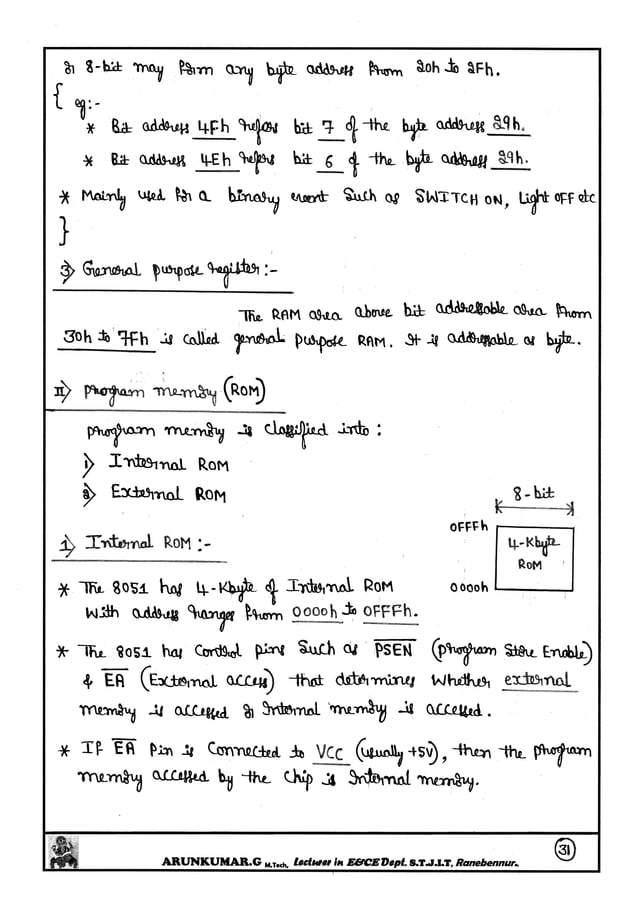 or 8-bit may form any byte address from 20h to 2Fh.
{ eg:-
* Bit address 4Fh refers bit 7 of the byte address 29h.
* Bit address 4Eh refers bit 6 of the byte address 29h.
* Mainly used for a binary event such as SWITCH ON, Light OFF etc
}
3) General purpose register:-
The RAM area above bit addressable area from
30h to 7Fh is called general purpose RAM. It is addressable as byte.
II) program memory (ROM)
program memory is classified into:
1) Internal ROM
2) External ROM
8-bit
0FFFh
4-Kbyte
ROM
0000h
1) Internal ROM:-
* The 8051 has 4-Kbyte of Internal ROM
with address ranges from 0000h to 0FFFh.
* The 8051 has control pins such as P̅S̅E̅N̅ (program Store Enable)
& E̅A̅ (External access) that determines whether external
memory is accessed or Internal memory is accessed.
* If E̅A̅ pin is connected to VCC (usually +5V), then the program
memory accessed by the chip is Internal memory.
31
ARUNKUMAR.G M.Tech, Lecturer in E&CE Dept. S.T.J.I.T, Ranebennur.